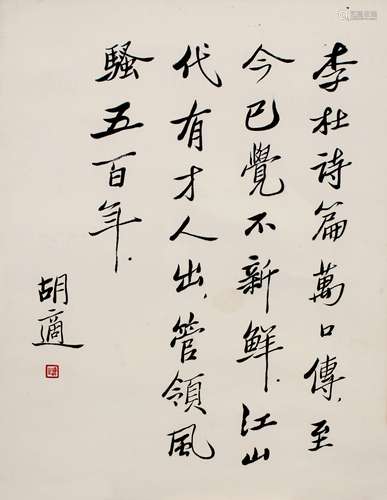 李杜詩篇萬口傳，至
今已覺不新鮮．江山
代有才人出，管領風
騷五百年．
胡適